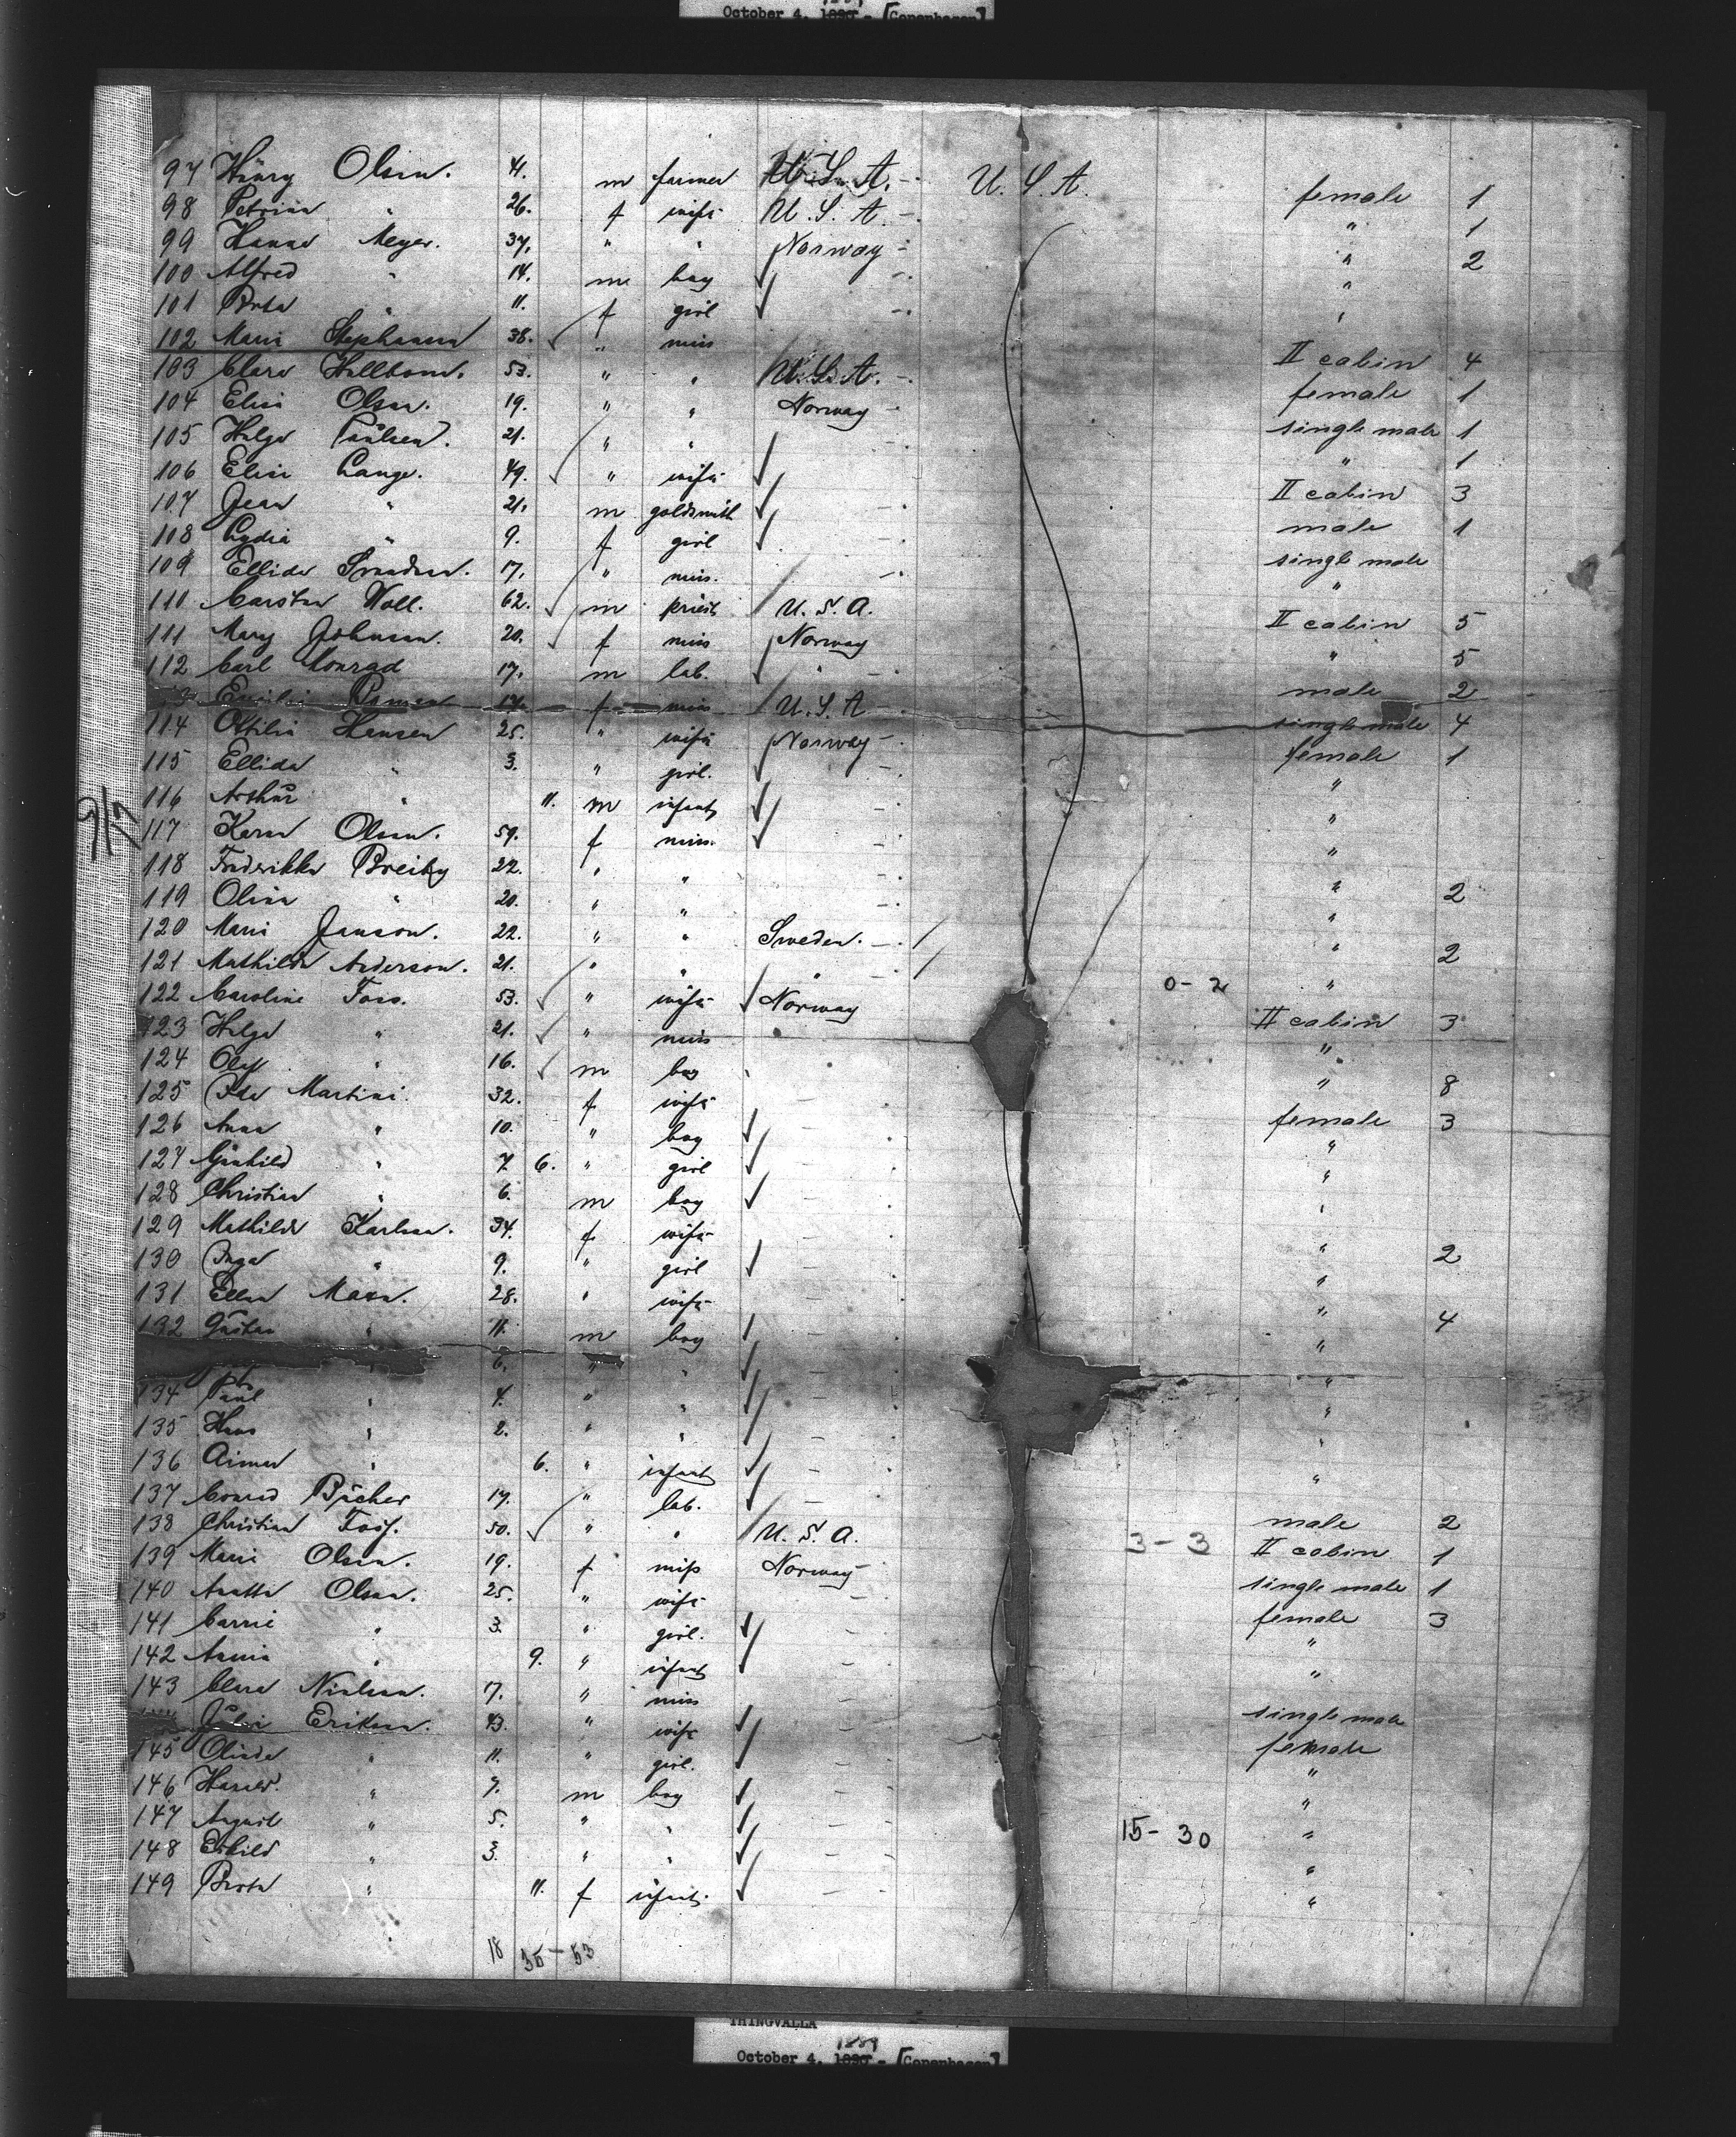 October 4, 1889 - [Copenhagen]
97 Henry Olsen. 41. m farmer U.S.A. - U.S.A. female 1
98 Petrina " 26. f wife U.S.A. - " 1
99 Hanna Meyer. 37. " " Norway - " 2
100 Alfred " 14. m boy - "
101 Berta " 11. f girl - "
102 Marie Stephansen 38. " miss II cabin 4
103 Clara 53. " " U.S.A. - female 1
104 Elise Olsen. 19. " " Norway - single male 1
105 Helga Paulsen. 21. " " - " 1
106 Elise Lange. 49. " wife II cabin 3
107 Jean " 21. m goldsmith - male 1
108 Lydia " 9. f girl - single male
109 Ellida 17. " miss. - "
110 Carsten Woll. 62. m priest U.S.A. II cabin 5
111 Mary Johnson. 20. f miss Norway " 5
112 Carl Konrad 17. m lab. " - male 2
17. f miss U.S.A - single male 4
114 Ottilia Hansen 25. " wife Norway - female 1
115 Ellida " 3. " girl. - "
116 Arthur " 11. m infant - "
117 Karen Olsen. 59. f miss. - "
118 Fredrikke Breiby 22. " " - " 2
119 Olina " 20. " " - "
120 Marie Janson. 22. " " Sweden. - " 2
121 Mathilda Anderson. 21. " " " 0-2 "
122 Caroline Foss. 53. " wife Norway II cabin 3
123 Helga " 21. " miss "
124 Olaf " 16. m boy " 8
125 Ida Martini. 32. f wife - female 3
126 Anna " 10. " boy - "
127 " 7 6. " girl - "
128 Christian " 6. m boy - "
129 Mathilde Karlsen. 34. f wife " 2
130 Inga " 9. " girl - "
131 Ellen 28. " wife - " 4
132 Gustav " 11. m boy - "
" 6. " " - "
134 Paul " 4. " " - "
135 Hans " 2. " " - "
136 " 6. " infant - "
137 Conrad Bücher 17. " lab. - male 2
138 Christian Foss. 50. " " U.S.A. 3-3 II cabin 1
139 Marie Olsen. 19. f miss Norway - single male 1
140 Olsen. 25. " wife - female 3
141 Carrie " 3. " girl. - "
142 Annie " 9. " infant - "
143 Clara Nielsen. 17. " miss single male
Eriksen. 43. " wife - female
145 Olinda " 11. " girl. "
146 " 7. m boy - "
147 August " 5. " " - 15-30 "
148 " 3. " " - "
149 Berta " 11. f infant. - "
18 35-53
THINGVALLA
1889
October 4, - [Copenhagen]